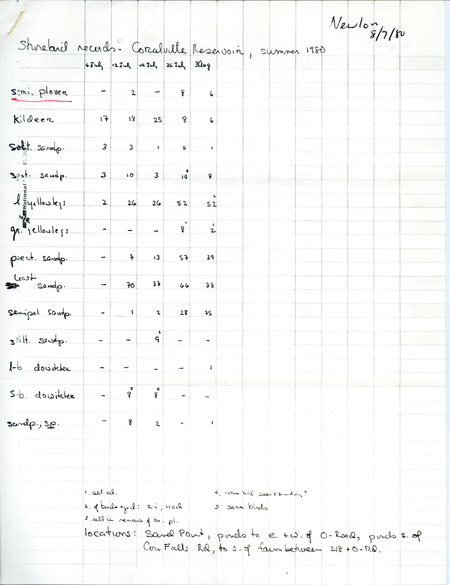 Newlon
8/7/80
Shorebird records - Coralville Reservoir, summer 1980
6 July 12 July 19 July 26 July 3 Aug
semi. plover - 2 - 8 6
Killdeer 17 18 25 8 6
solit. sandp. 3 3 1 5 1
spot. sandp. 3 10 3 14 8
l. yellowlegs 2 26 26 52 52
gr. yellowlegs - - - 8 2
pect. sandp. - 7 13 57 39
least sandp. - 70 37 66 38
semipal sandp. - 1 2 28 25
stilt. sandp. - - 9 - -
l-b dowitcher - - - - 1
s.b. dowitcher - 8 8 - -
sandp., sp. - 8 2 - 1
1. all ad.
2. of birds aged: 2 i, 11 ad
3. all in remains of br. pl.
5. same birds
locations: Sand Point, ponds to e. + w. of O-Road, ponds s. of
Cou Falls Rd, to s. of farm between 218 + O-Rd.